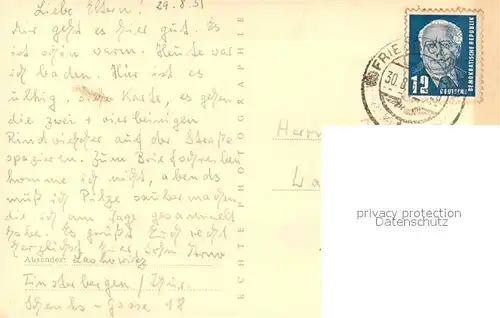 Liebe Eltern! 29.8.51
Mir geht es hier gut. Es
ist schön warm. Heute war
ich baden. Hier ist es
ulkig, siehe Karte, es gehen
die zwei + vierbeinigen
Rindviecher auf der Straße
spazieren. Zum Briefschreiben
komme ich nicht, abends
muß ich Pilze saubermachen
die ich am Tage gesammelt
habe. Es grüßt Euch recht
herzlichst Euer Sohn
Absender:
Finsterbergen / Thür.
Schenks-Gasse 18
ECHTE PHOTOGRAPHIE
Herrn
La
FRIE
30.8.
12
DEUTSCHE
DEMOKRATISCHE REPUBLIK
privacy protection
Datenschutz